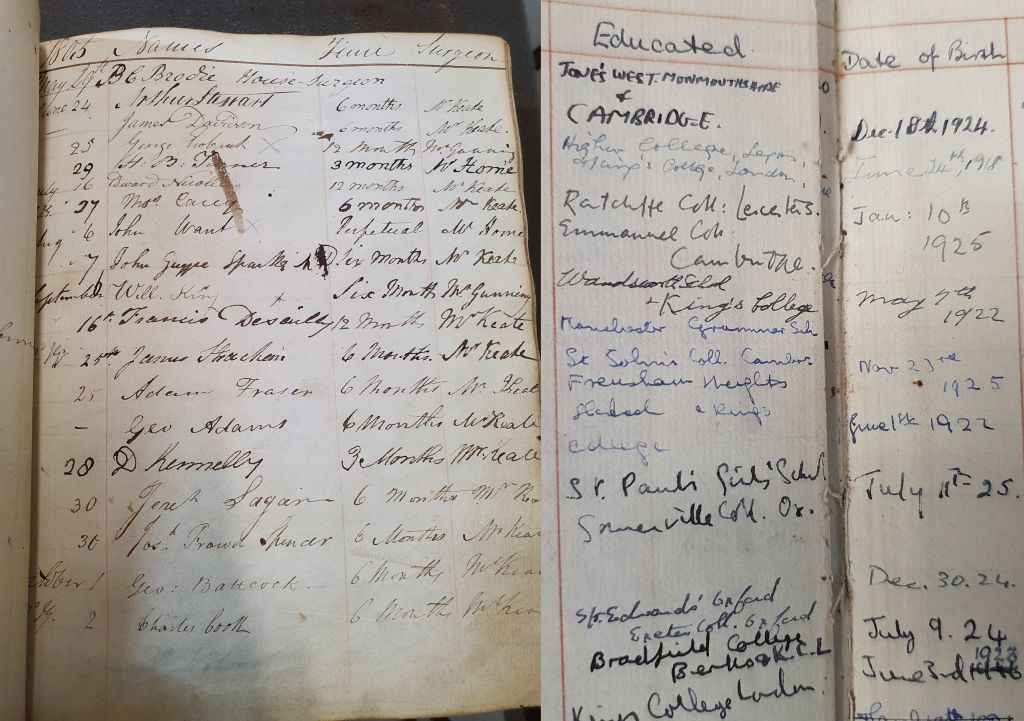 1805 Names Time Surgeon
May 29th B C Brodie House-Surgeon
June 24. Arthur Stewart 6 months Mr Keate
James Davison 6 months Mr Keate.
25 George 12 Months Mr Gunning
29 H. B. 3 months Mr Home
July 16 Edward 12 months Mr Keate.
27 Thos. Carey 6 months Mr Keate.
Aug 6 John Want Perpetual Mr Home
7 John Guppe Sparks Six months Mr Keate
September Will. King Six Month Mr Gunning
16th Francis Desailly 12 Months Mr Keate
25th James Strachan 6 Months. Mr Keate
25 Adam Fraser 6 Months Mr Keat
- Geo Adams 6 Months Mr Keate
28 D Kennelly 3 Months Mr Keate
30 6 Months Mr
30 Jos.h Frowd Spencer 6 Months Mr Kea
October 1 Geo: Battcock 6 Months Mr Kea
2 Charles Cook 6 Month Mr Kea
Educated.
JONES WEST. MONMOUTHSHIRE
&
CAMBRIDGE.
Higher College,
Kings College, London,
Ratcliffe Coll: Leicester.
Emmanuel Coll:
Cambridge.
Wandsworth Schl
+ King's College
Manchester Grammar Sch
St John's Coll. Cambr.
Frensham Heights
School & Kings
College
St. Paul's Girls' School
Somerville Coll. Ox.
St. Edward's Oxford
Exeter Coll. Oxford
Bradfield College
Berks & K.C.L
Kings College London.
Date of Birth
Dec. 18th 1924.
June 24th, 1918
Jan: 10th
1925
May 7th
1922
Nov 23rd
1925
June 1st 1922
July 11th 25.
Dec. 30. 24.
July 9. 24
June 3rd 1923